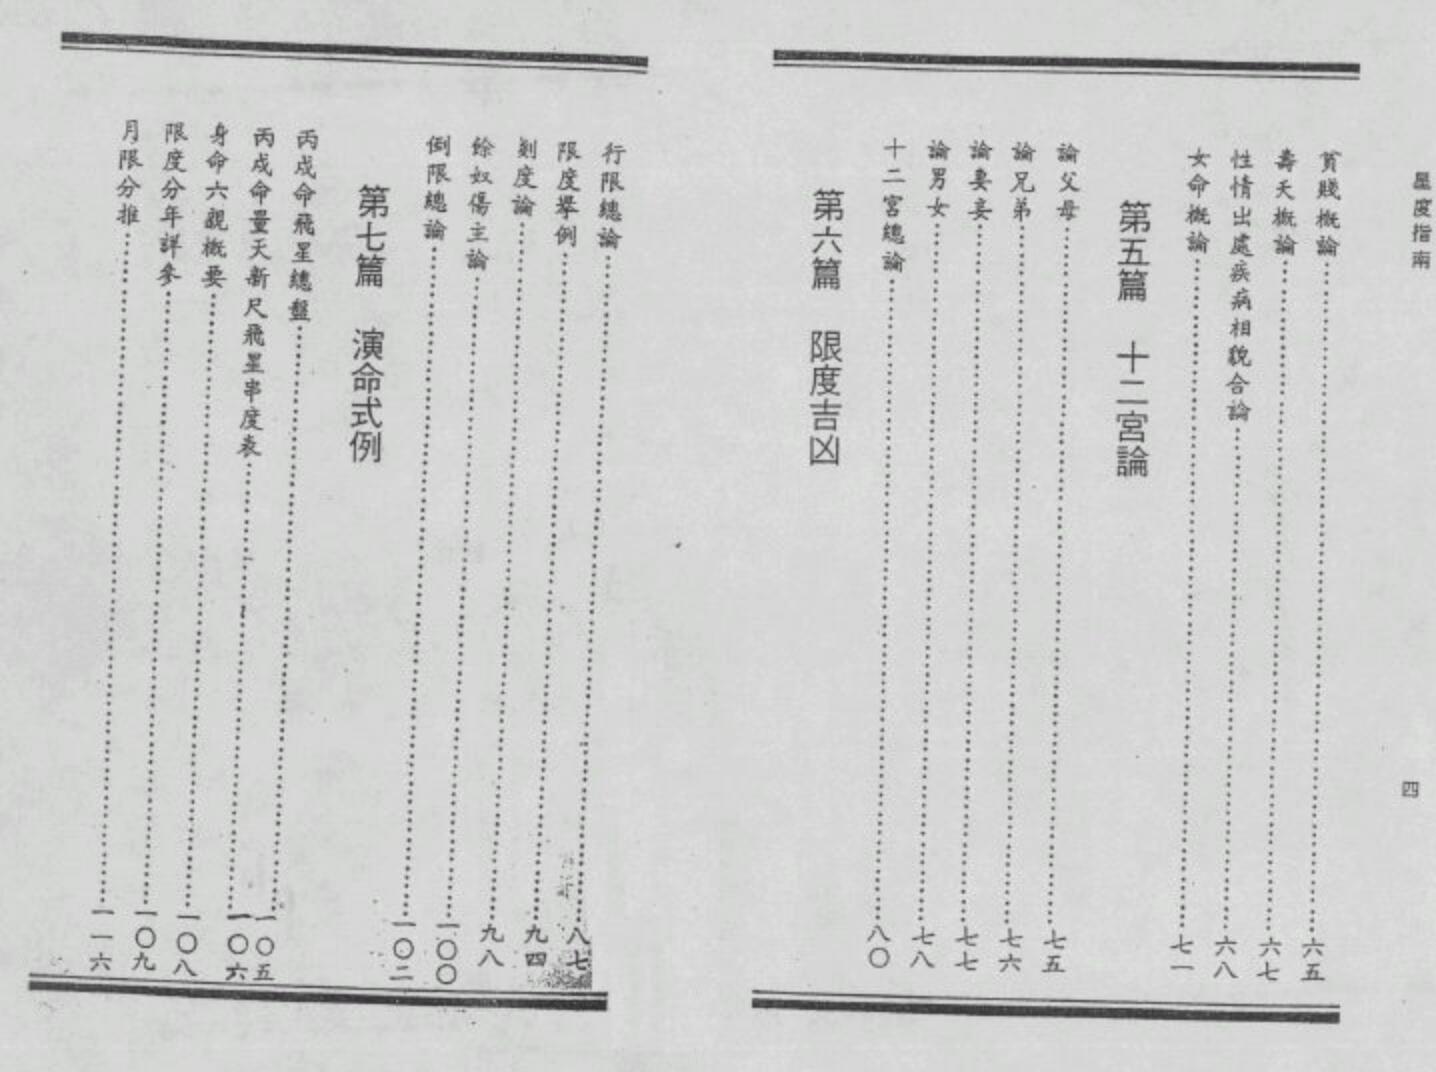 星度指南
四
貧賤概論……六五
壽夭概論……六七
性情出處疾病相貌合論……六八
女命概論……七一
第五篇　十二宮論
論父母……七五
論兄弟……七六
論妻妾……七七
論男女……七八
十二宮總論……八〇
第六篇　限度吉凶
行限總論……八七
限度舉例……九四
剡度論……九八
餘奴傷主論……一〇〇
倒限總論……一〇二
第七篇　演命式例
丙戌命飛星總盤……一〇五
丙戌命量天新尺飛星串度表……一〇六
身命六親概要……一〇八
限度分年詳參……一〇九
月限分推……一一六